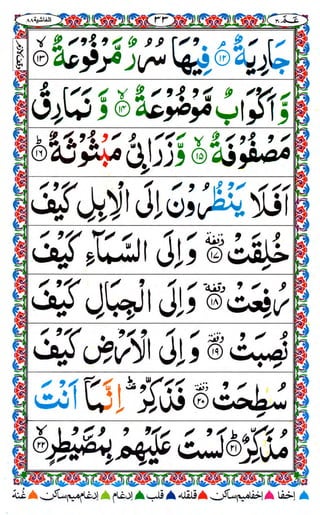 الغاشية ٨٨ ٣٣ عم ٣٠
جَارِيَةٌ ۝١٢ فِيْهَا سُرُرٌ مَّرْفُوْعَةٌ ۝١٣
وَّ اَكْوَابٌ مَّوْضُوْعَةٌ ۝١٤ وَّ نَمَارِقُ
مَصْفُوْفَةٌ ۝١٥ وَّ زَرَابِيُّ مَبْثُوْثَةٌ ۝١٦
اَفَلَا يَنْظُرُوْنَ اِلَى الْاِبِلِ كَيْفَ
خُلِقَتْ ۝١٧ وَ اِلَى السَّمَآءِ كَيْفَ
رُفِعَتْ ۝١٨ وَ اِلَى الْجِبَالِ كَيْفَ
نُصِبَتْ ۝١٩ وَ اِلَى الْاَرْضِ كَيْفَ
سُطِحَتْ ۝٢٠ فَذَكِّرْ اِنَّمَآ اَنْتَ
مُذَكِّرٌ ۝٢١ لَسْتَ عَلَيْهِمْ بِمُصَۜيْطِرٍ ۝٢٢
اخفا اخفامیم ساکن قلقله قلب ادغام ادغام میم ساکن غنة